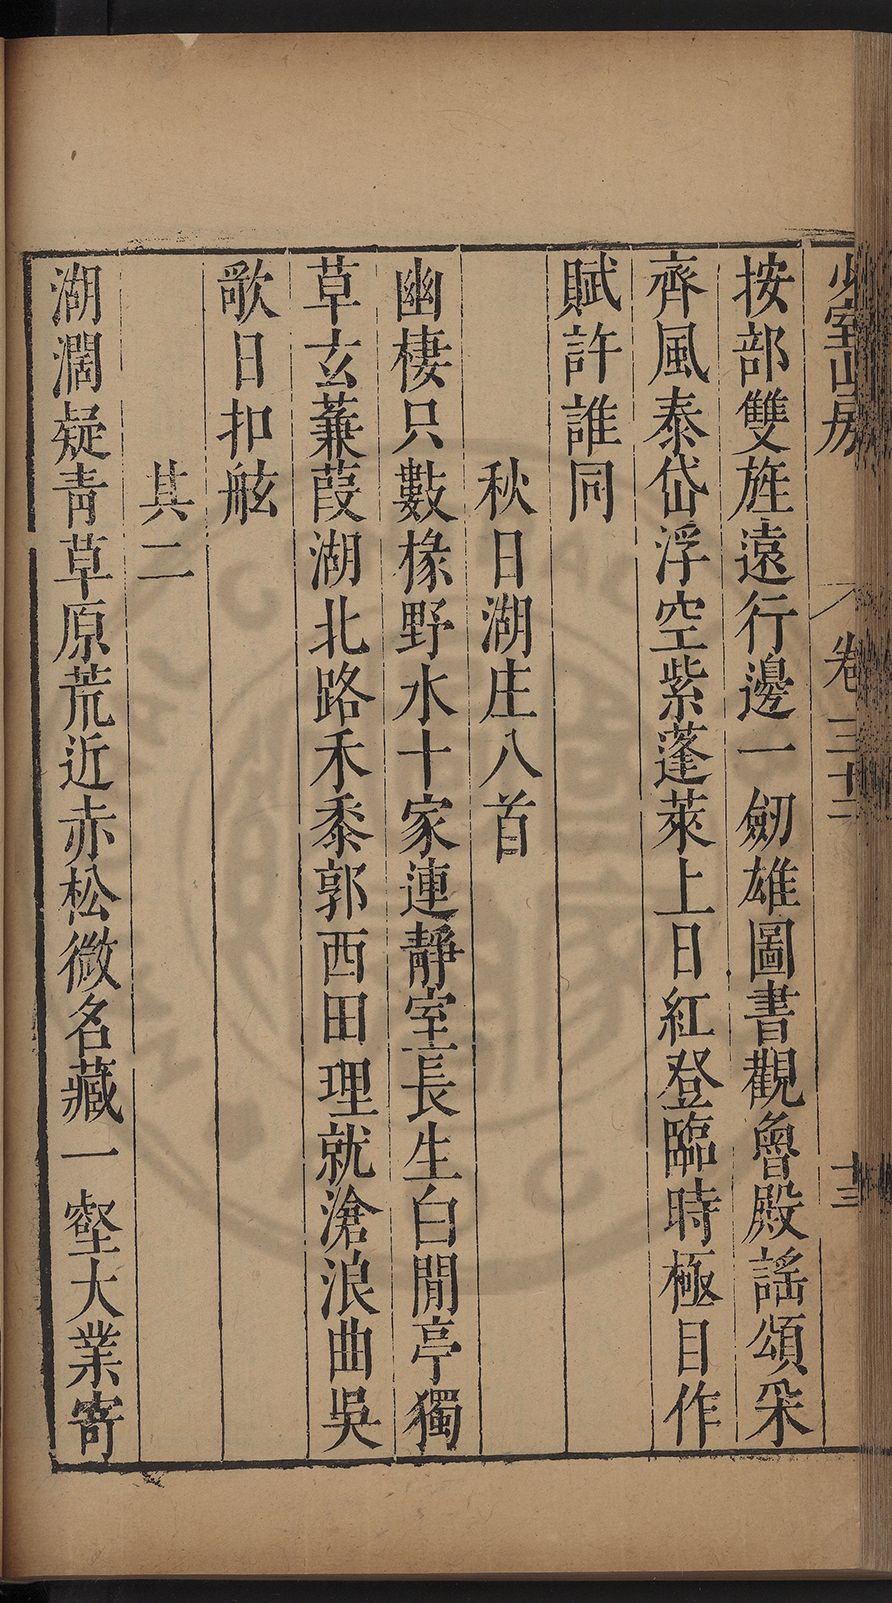 少室山房 卷三十二 十三
按部雙旌遠行邊一劒雄圖書觀魯殿謠頌采
齊風泰岱浮空紫蓬萊上日紅登臨時極目作
賦許誰同
秋日湖庄八首
幽棲只數椽野水十家連靜室長生白閒亭獨
草玄蒹葭湖北路禾黍郭西田理就滄浪曲吳
歌日扣舷
其二
湖濶疑青草原荒近赤松微名藏一壑大業寄